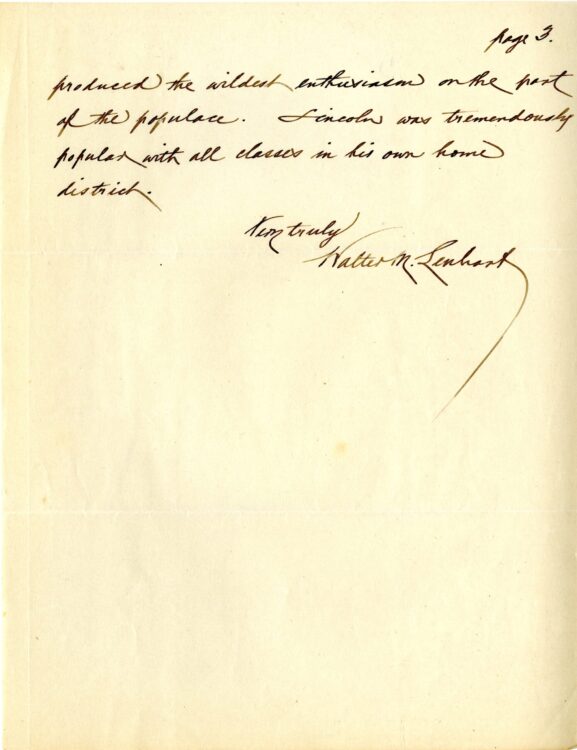 page 3.
produced the wildest enthusiasm on the part
of the populace. Lincoln was tremendously
popular with all classes in his own home
district.
Very truly
Walter N. Lenhart